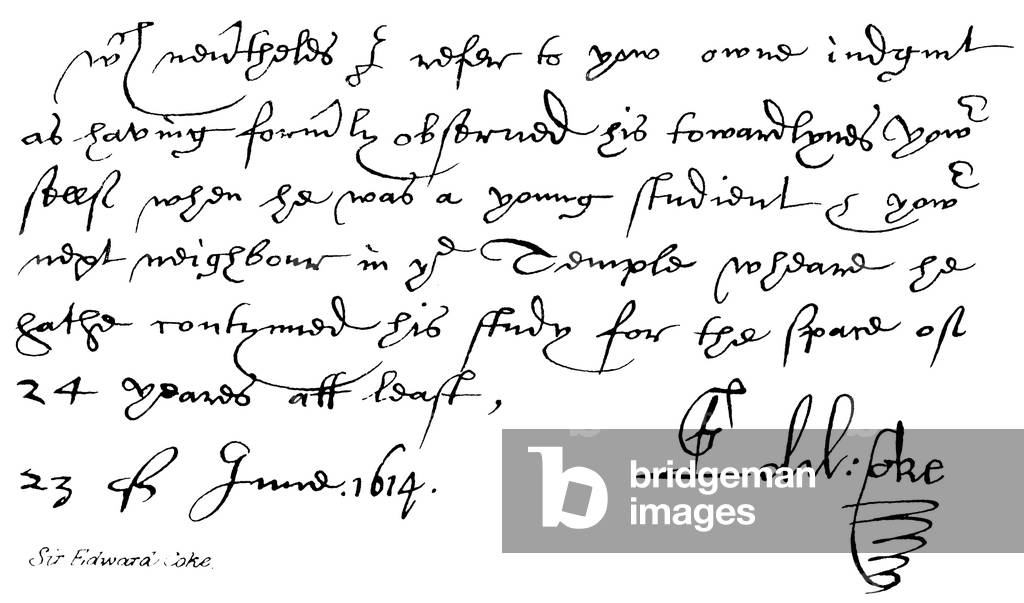 wch nevertheles I refer to yow owne iudgmt
as having formerly observed his towardlynes yowr
self when he was a young studient & yowr
next neighbour in ye Temple wheare he
hathe contynued his study for the space of
24 yeares att least,
23 of June. 1614.
Edw: Coke
Sir Edward Coke.
bridgeman
images